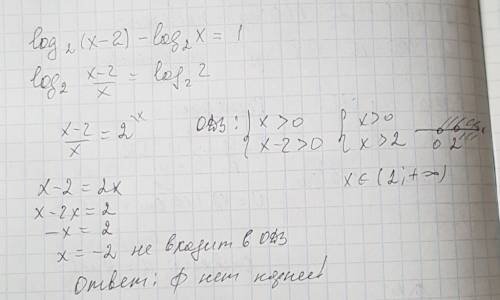 log₂(x-2) - log₂x = 1
log₂ (x-2)/x = log₂2
(x-2)/x = 2^\x
ОДЗ: { x>0 { x>0
{ x-2>0 { x>2
0 2
x ∈ (2; +∞)
x-2 = 2x
x-2x = 2
-x = 2
x = -2 не входит в ОДЗ
Ответ: ϕ нет корней